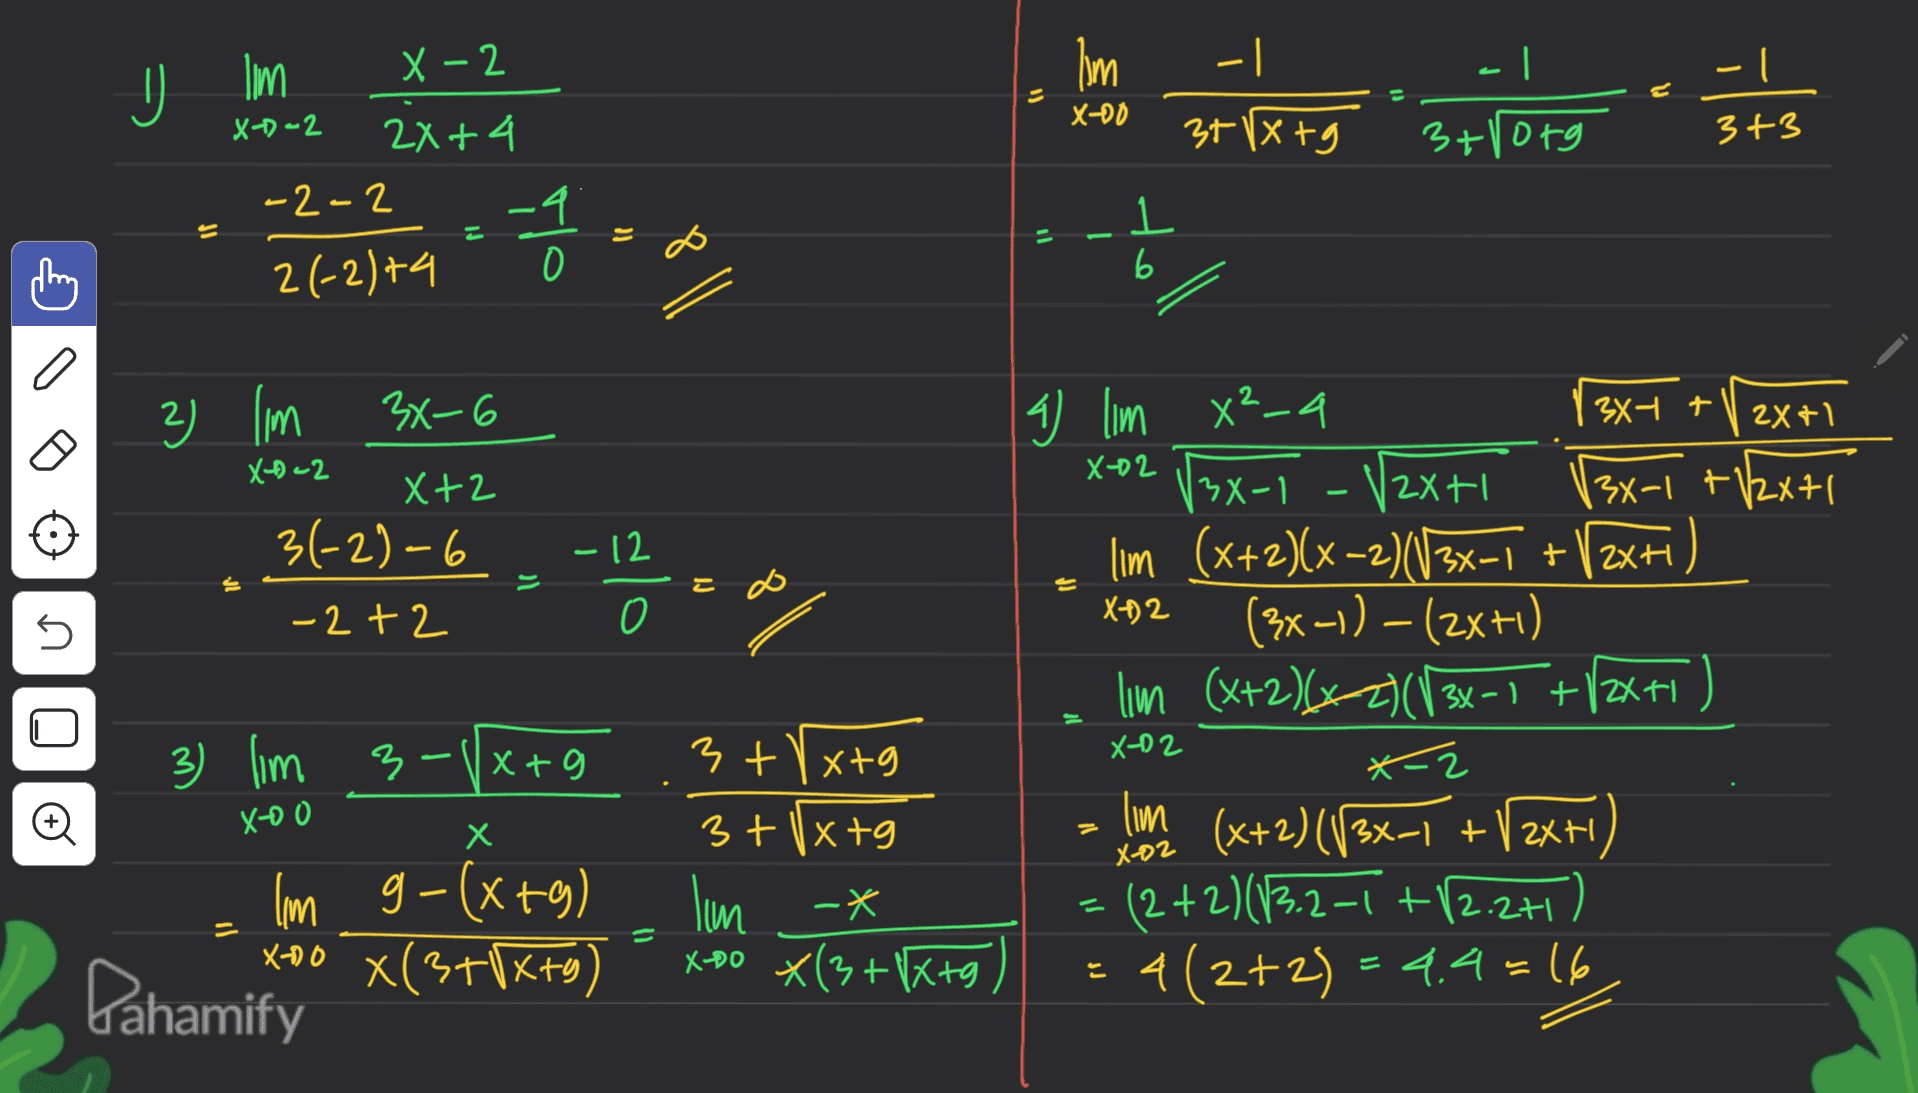 1) lim x→-2 (x-2)/(2x+4)
= (-2-2)/(2(-2)+4) = -4/0 = ∞
2) lim x→-2 (3x-6)/(x+2)
= (3(-2)-6)/(-2+2) = -12/0 = ∞
3) lim x→0 (3-√(x+9))/x . (3+√(x+9))/(3+√(x+9))
= lim x→0 (9-(x+9))/(x(3+√(x+9))) = lim x→0 -x/(x(3+√(x+9)))
= lim x→0 -1/(3+√(x+9)) = -1/(3+√(0+9)) = -1/(3+3)
= -1/6
4) lim x→2 (x²-4)/(√(3x-1) - √(2x+1)) . (√(3x-1) + √(2x+1))/(√(3x-1) + √(2x+1))
= lim x→2 (x+2)(x-2)(√(3x-1) + √(2x+1))/((3x-1)-(2x+1))
= lim x→2 (x+2)(x-2)(√(3x-1) + √(2x+1))/(x-2)
= lim x→2 (x+2)(√(3x-1) + √(2x+1))
= (2+2)(√(3.2-1) + √(2.2+1))
= 4(2+2) = 4.4 = 16
Pahamify